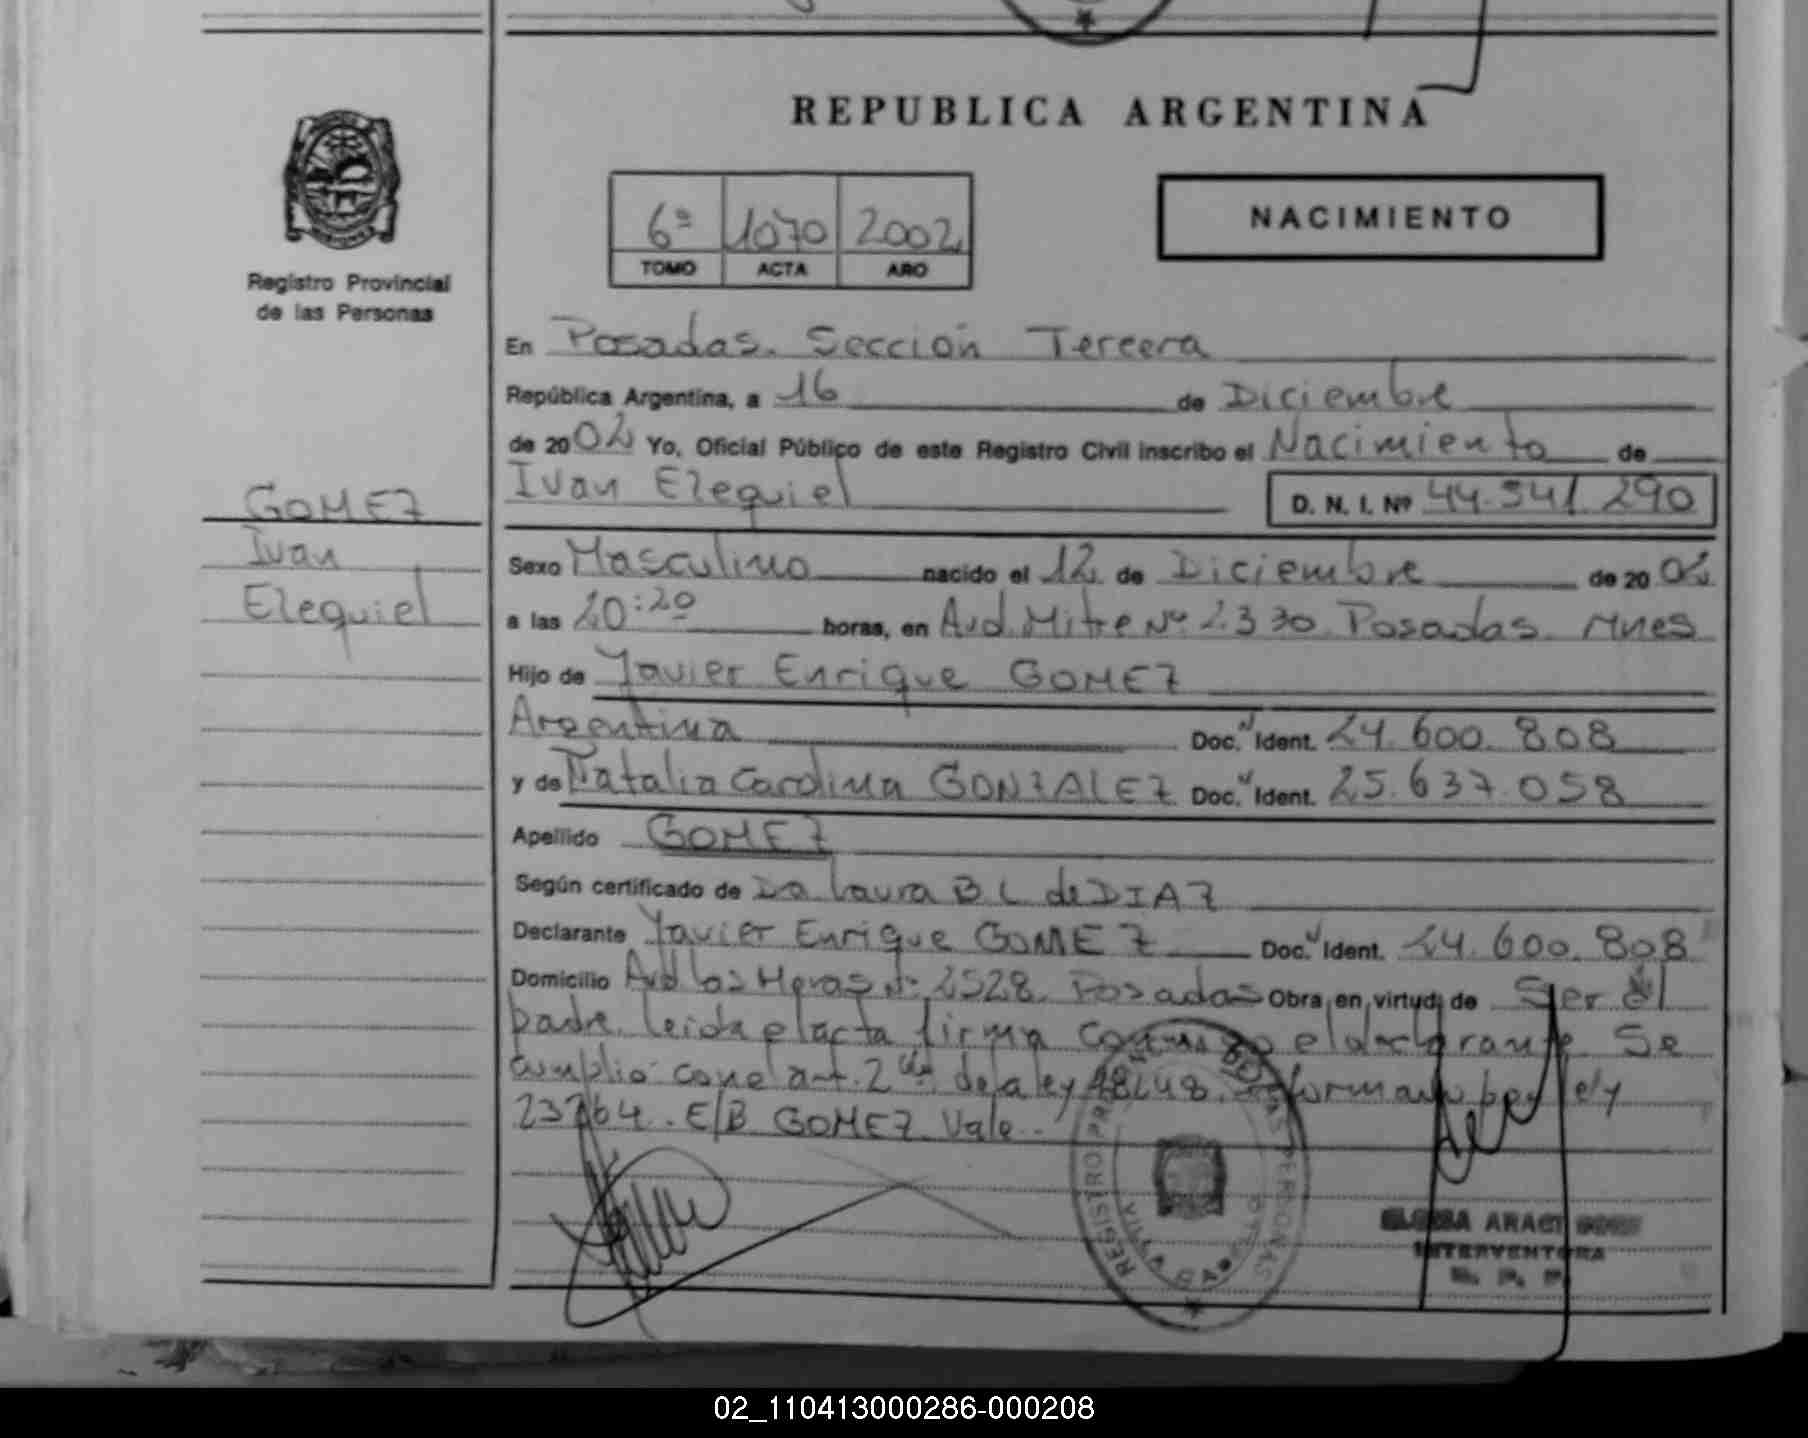 REPUBLICA ARGENTINA
6º 1070 2002
TOMO ACTA AÑO
NACIMIENTO
Registro Provincial
de las Personas
GOMEZ
Ivan
Ezequiel
En Posadas. Sección Tercera
República Argentina, a 16 de Diciembre
de 2002 Yo, Oficial Público de este Registro Civil inscribo el Nacimiento de
Ivan Ezequiel D. N. I. Nº 44.541.290
Sexo Masculino nacido el 12 de Diciembre de 2002
a las 20:20 horas, en Avd. Mitre Nº 2330. Posadas. Mnes
Hijo de Javier Enrique GOMEZ
Argentina Doc. Ident. 24.600.808
y de Natalia Carolina GONZALEZ Doc. Ident. 25.637.058
Apellido GOMEZ
Según certificado de Da Laura B. L. de DIAZ
Declarante Javier Enrique GOMEZ Doc. Ident. 24.600.808
Domicilio Avd Las Heras Nº 2528. Posadas Obra en virtud de Ser el
padre. Leida el acta firma conmigo el declarante. Se
cumplió con el art. 2 de la ley 18248. reformado por ley
23264. E/B GOMEZ. Vale.
REGISTRO PERSONAS
POSADAS
ARACI
INTERVENTORA
R. P. P.
02_110413000286-000208